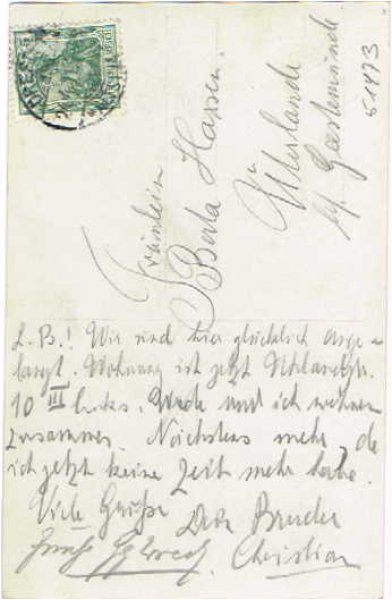 DRESDEN
Fräulein
Berta Hassen.
Üterlande
b/ Geestemünde
51473
L. B.! Wir sind hier glücklich ange-
langt. Wohnung ist jetzt Uhlandstr.
10 III links. und ich wohnen
zusammen Nächstens mehr, da
ich jetzt keine Zeit mehr habe.
Viele Grüße
Dein Bruder
Christian